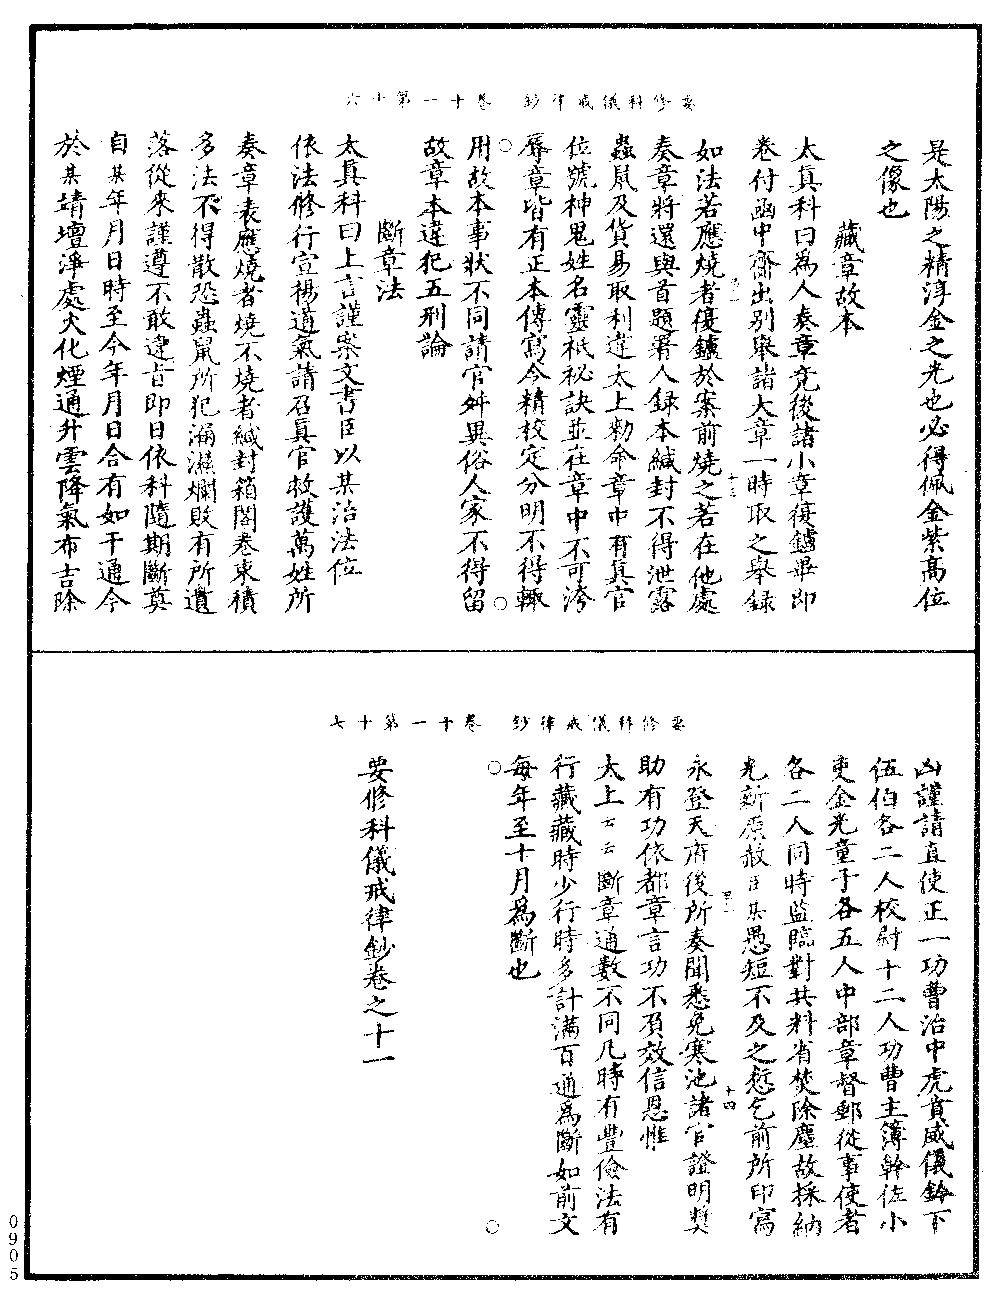 要修科儀戒律鈔 卷十一第十六
是太陽之精淳金之光也必得佩金紫高位
之像也
藏章故本
太真科曰為人奏章竟後諸小章復鑪畢即
卷付函中齋出別舉諸大章一時取之舉錄
如法若應燒者復鑪於案前燒之若在他處
奏章將還與首題署人録本緘封不得泄露
蟲鼠及貨易取利違太上勑命章中有真官
位號神鬼姓名靈祇祕訣並在章中不可洿
辱章皆有正本傳寫今精校定分明不得輙
用故本事狀不同請官舛異俗人家不得留
故章本違犯五刑論
斷章法
太真科曰上言謹案文書臣以某治法位
依法修行宣楊道氣請召真官救護萬姓所
奏章表應燒者燒不燒者緘封箱閣卷束積
多法不得散恐蟲鼠所犯漏濕爛敗有所遺
落從來謹遵不敢違旨即日依科隨期斷奠
自某年月日時至今年月日合有如干通今
於某靖壇淨處火化煙通升雲降氣布吉除
要修科儀戒律鈔 卷十一第十七
凶謹請直使正一功曹治中虎賁威儀鈴下
伍伯各二人校尉十二人功曹主簿幹佐小
吏金光童子各五人中部章督郵從事使者
各二人同時監臨對共料省焚除塵故採納
光新原赦臣某愚短不及之愆乞前所印寫
永登天府後所奏聞悉免寒池諸官證明獎
助有功依都章言功不負效信恩惟
太上云云斷章通數不同凡時有豐儉法有
行藏藏時少行時多計滿百通為斷如前文
每年至十月為斷也
要修科儀戒律鈔卷之十一
十三
十四
0905